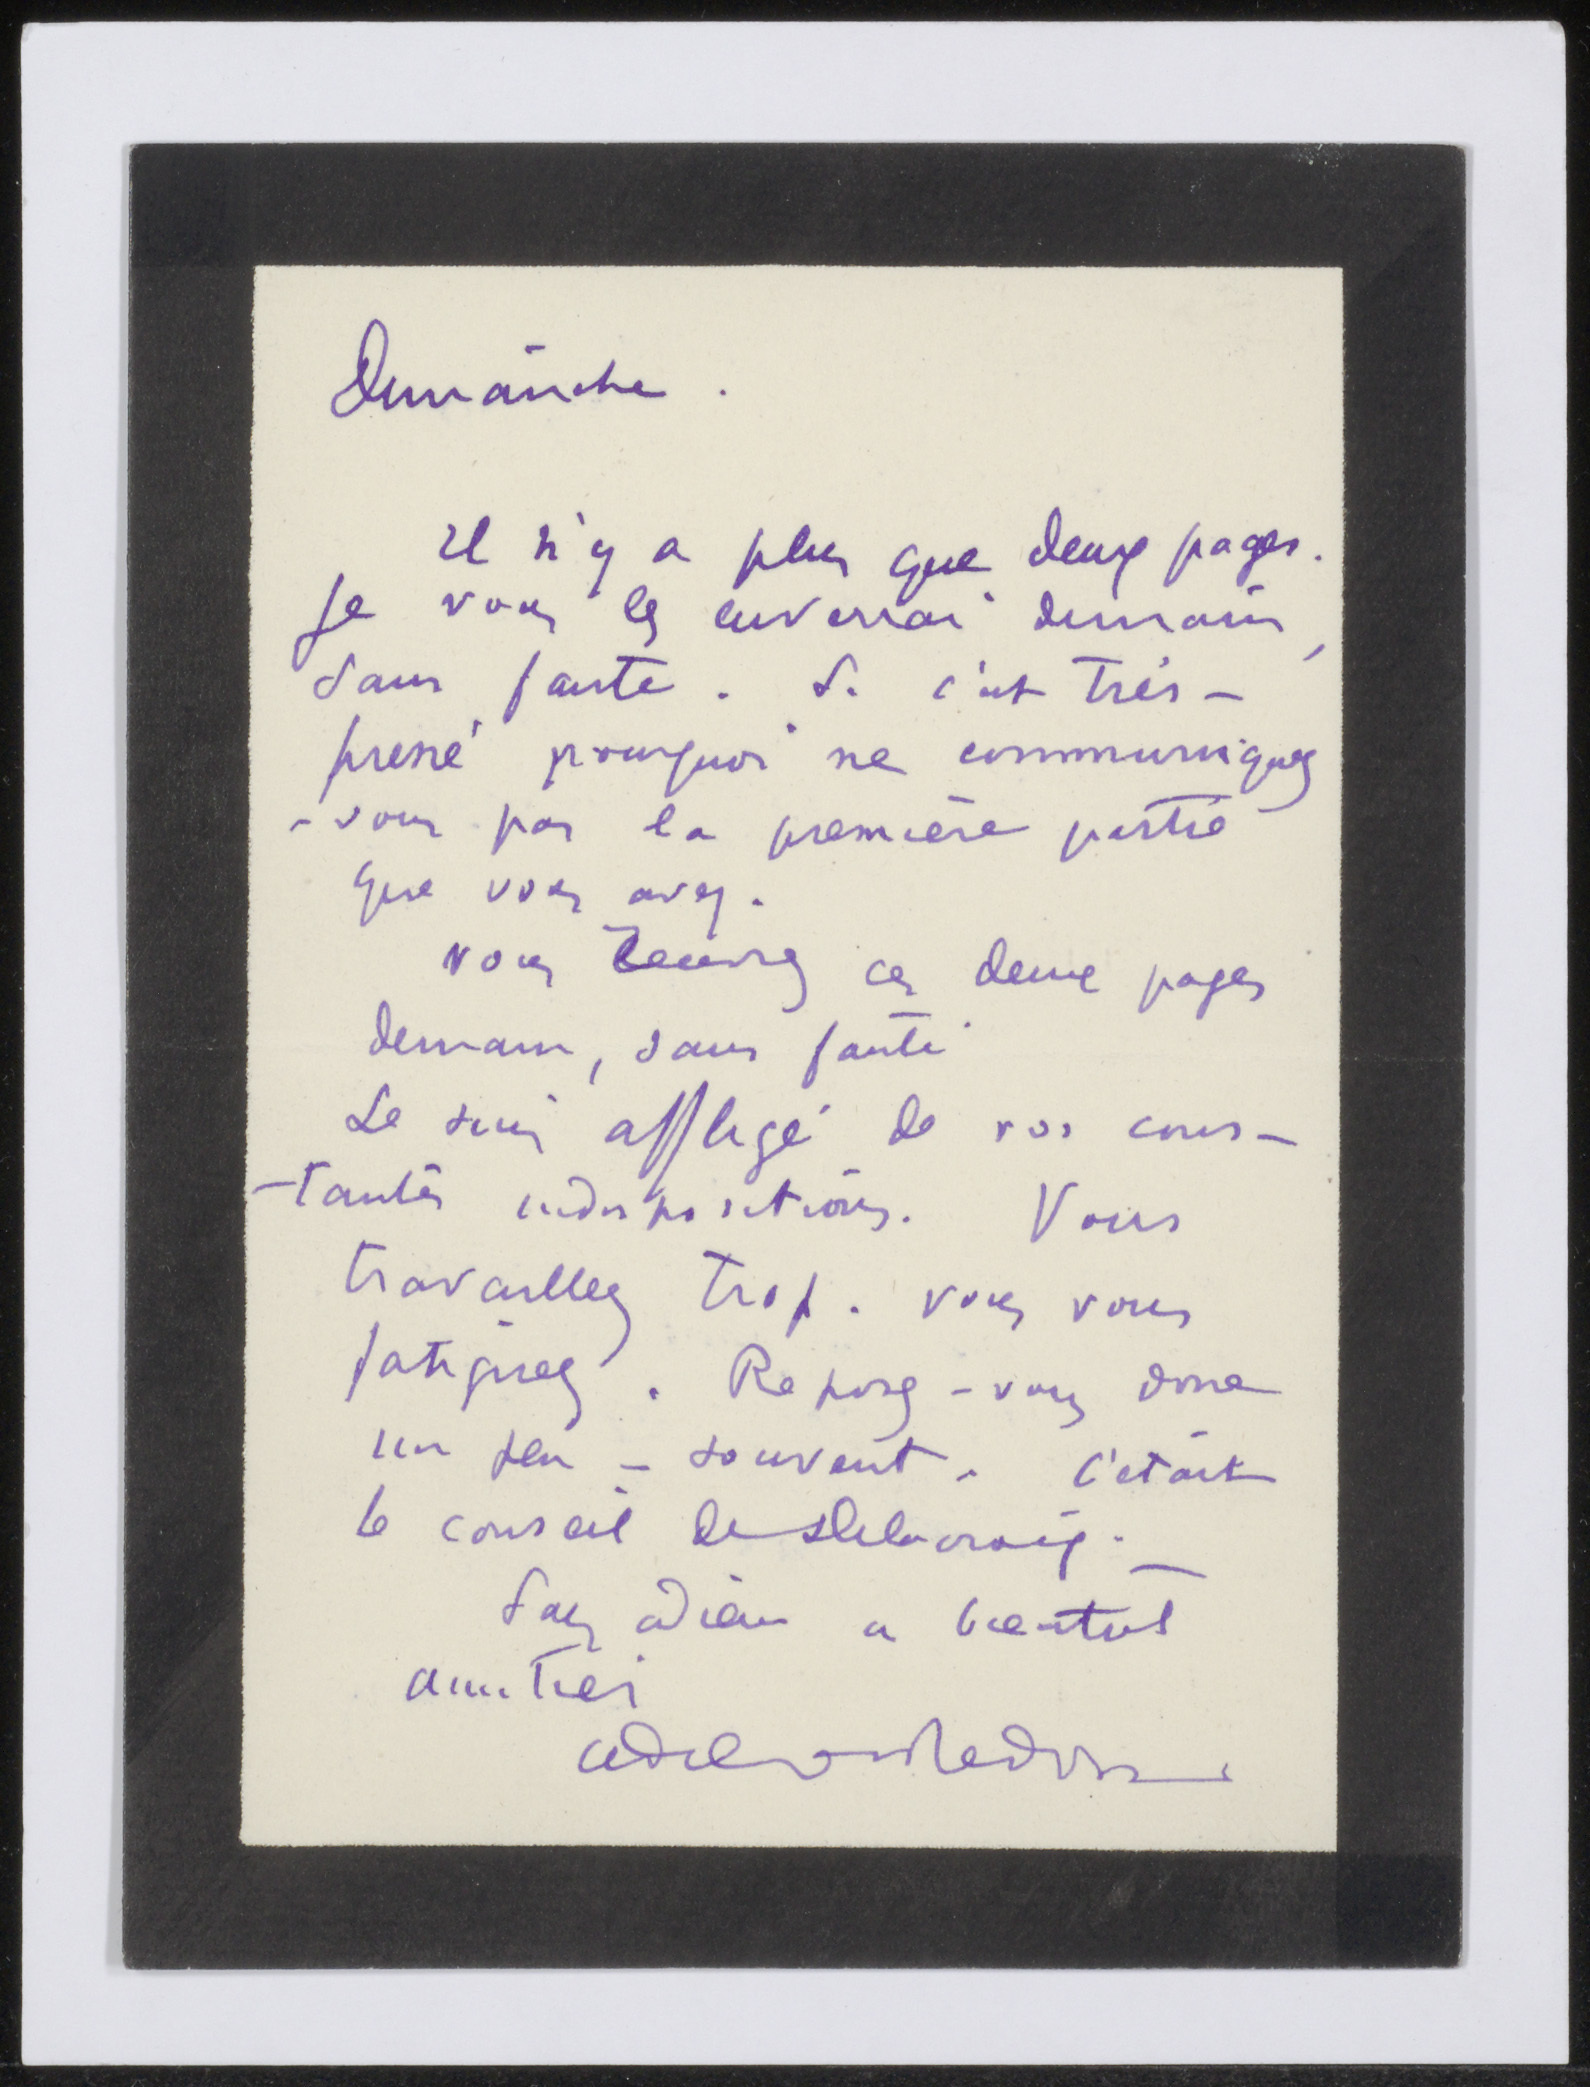 Dimanche.
Il n'y a plus que deux pages.
Je vous les enverrai demain,
sans faute. Si c'est très-
pressé pourquoi ne communiquez
-vous pas la première partie
que vous avez.
Vous aurez ces deux pages
demain, sans faute
Je suis affligé de vos cons-
-tantes indispositions. Vous
travaillez trop. Vous vous
fatiguez. Reposez-vous donc
un peu - souvent. C'était
le conseil de Delacroix.
adieu a bientot
amitiés
Odilon Redon